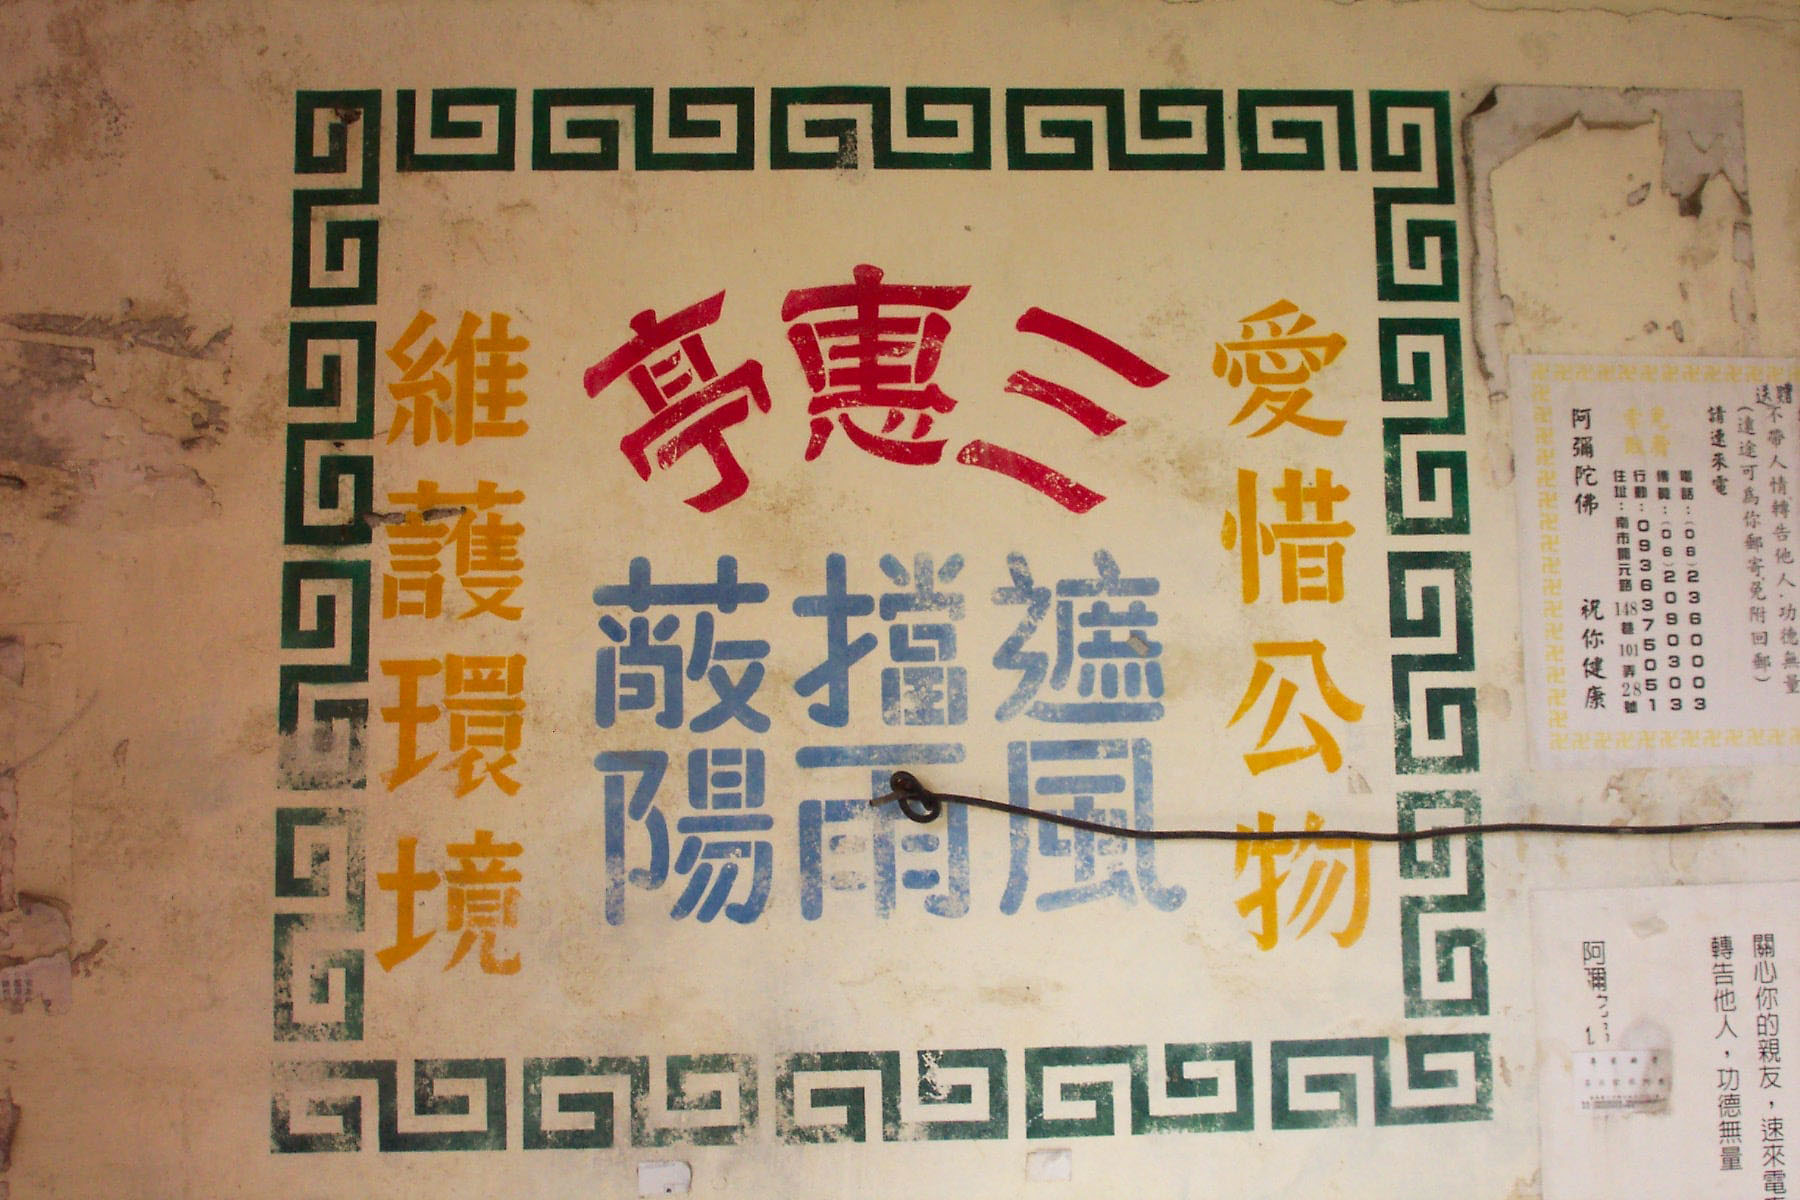 三惠亭
愛惜公物
遮風
擋雨
蔽陽
維護環境
贈送
不帶人情轉告他人.功德無量
(遠途可為你郵寄免附回郵)
請速來電
電話：(06)2360003
傳真：(06)2090303
行動：0936375051
住址：南市開元路148巷101弄28號
阿彌陀佛
祝你健康
關心你的親友，速來電
轉告他人，功德無量
阿彌